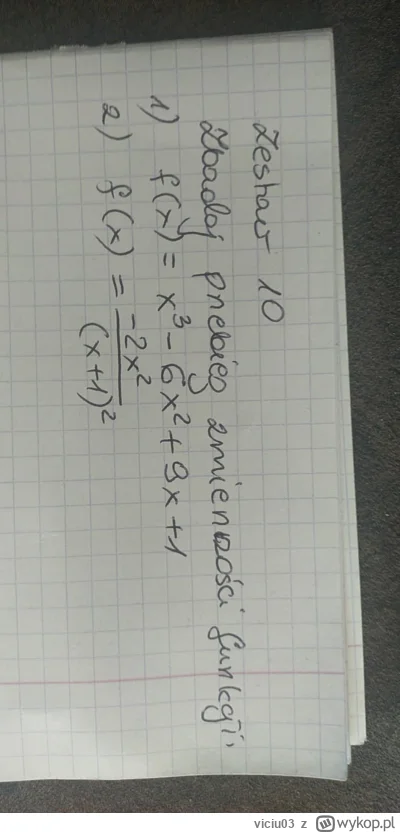 Zestaw 10
Zbadaj przebieg zmienności funkcji:
1) f(x) = x³ - 6x² + 9x + 1
2) f(x) = -2x² / (x+1)²
viciu03 z wykop.pl